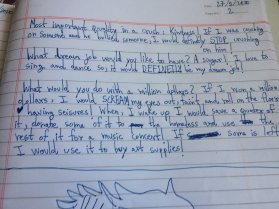 27/5/2020
2
Most important quality in a crush: Kindness! If I was crushing
on someone and he bullied someone, I would definitely STOP crushing
on him.
What dream job would you like to have? A singer! I love to
sing and dance so, it would DEFINITELY be my dream job!
What would you do with a million dollars? If I won a million
dollars, I would SCREAM my eyes out, faint, and roll on the floor
having seisures! When, I wake up I would save a quarter of
it, donate some of it to the homeless and use the
rest of it for a music concert! If some is left
I would use it to buy art supplies!